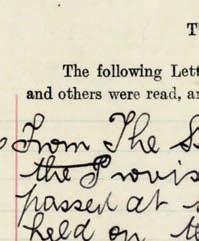 T
The following Lett
and others were read, a
From The S
the Provis
passed at
held on th